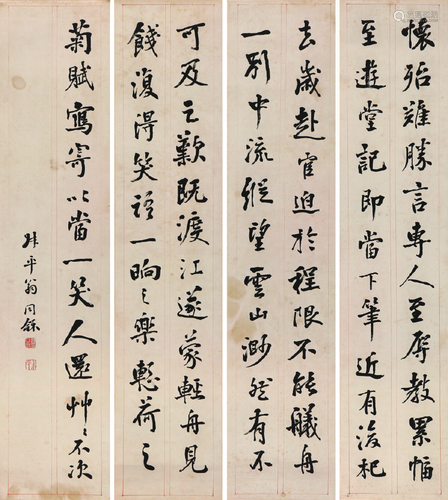 懷殆難勝言專人至辱教累幅
至遊堂記即當下筆近有後杞
去歲赴官迫於程限不能艤舟
一別中流縱望雲山渺然有不
可及之歎既渡江遂蒙輕舟見
餞復得笑語一晌之樂慙荷之
菊賦寫寄以當一笑人還艸〻不次
叔平翁同龢